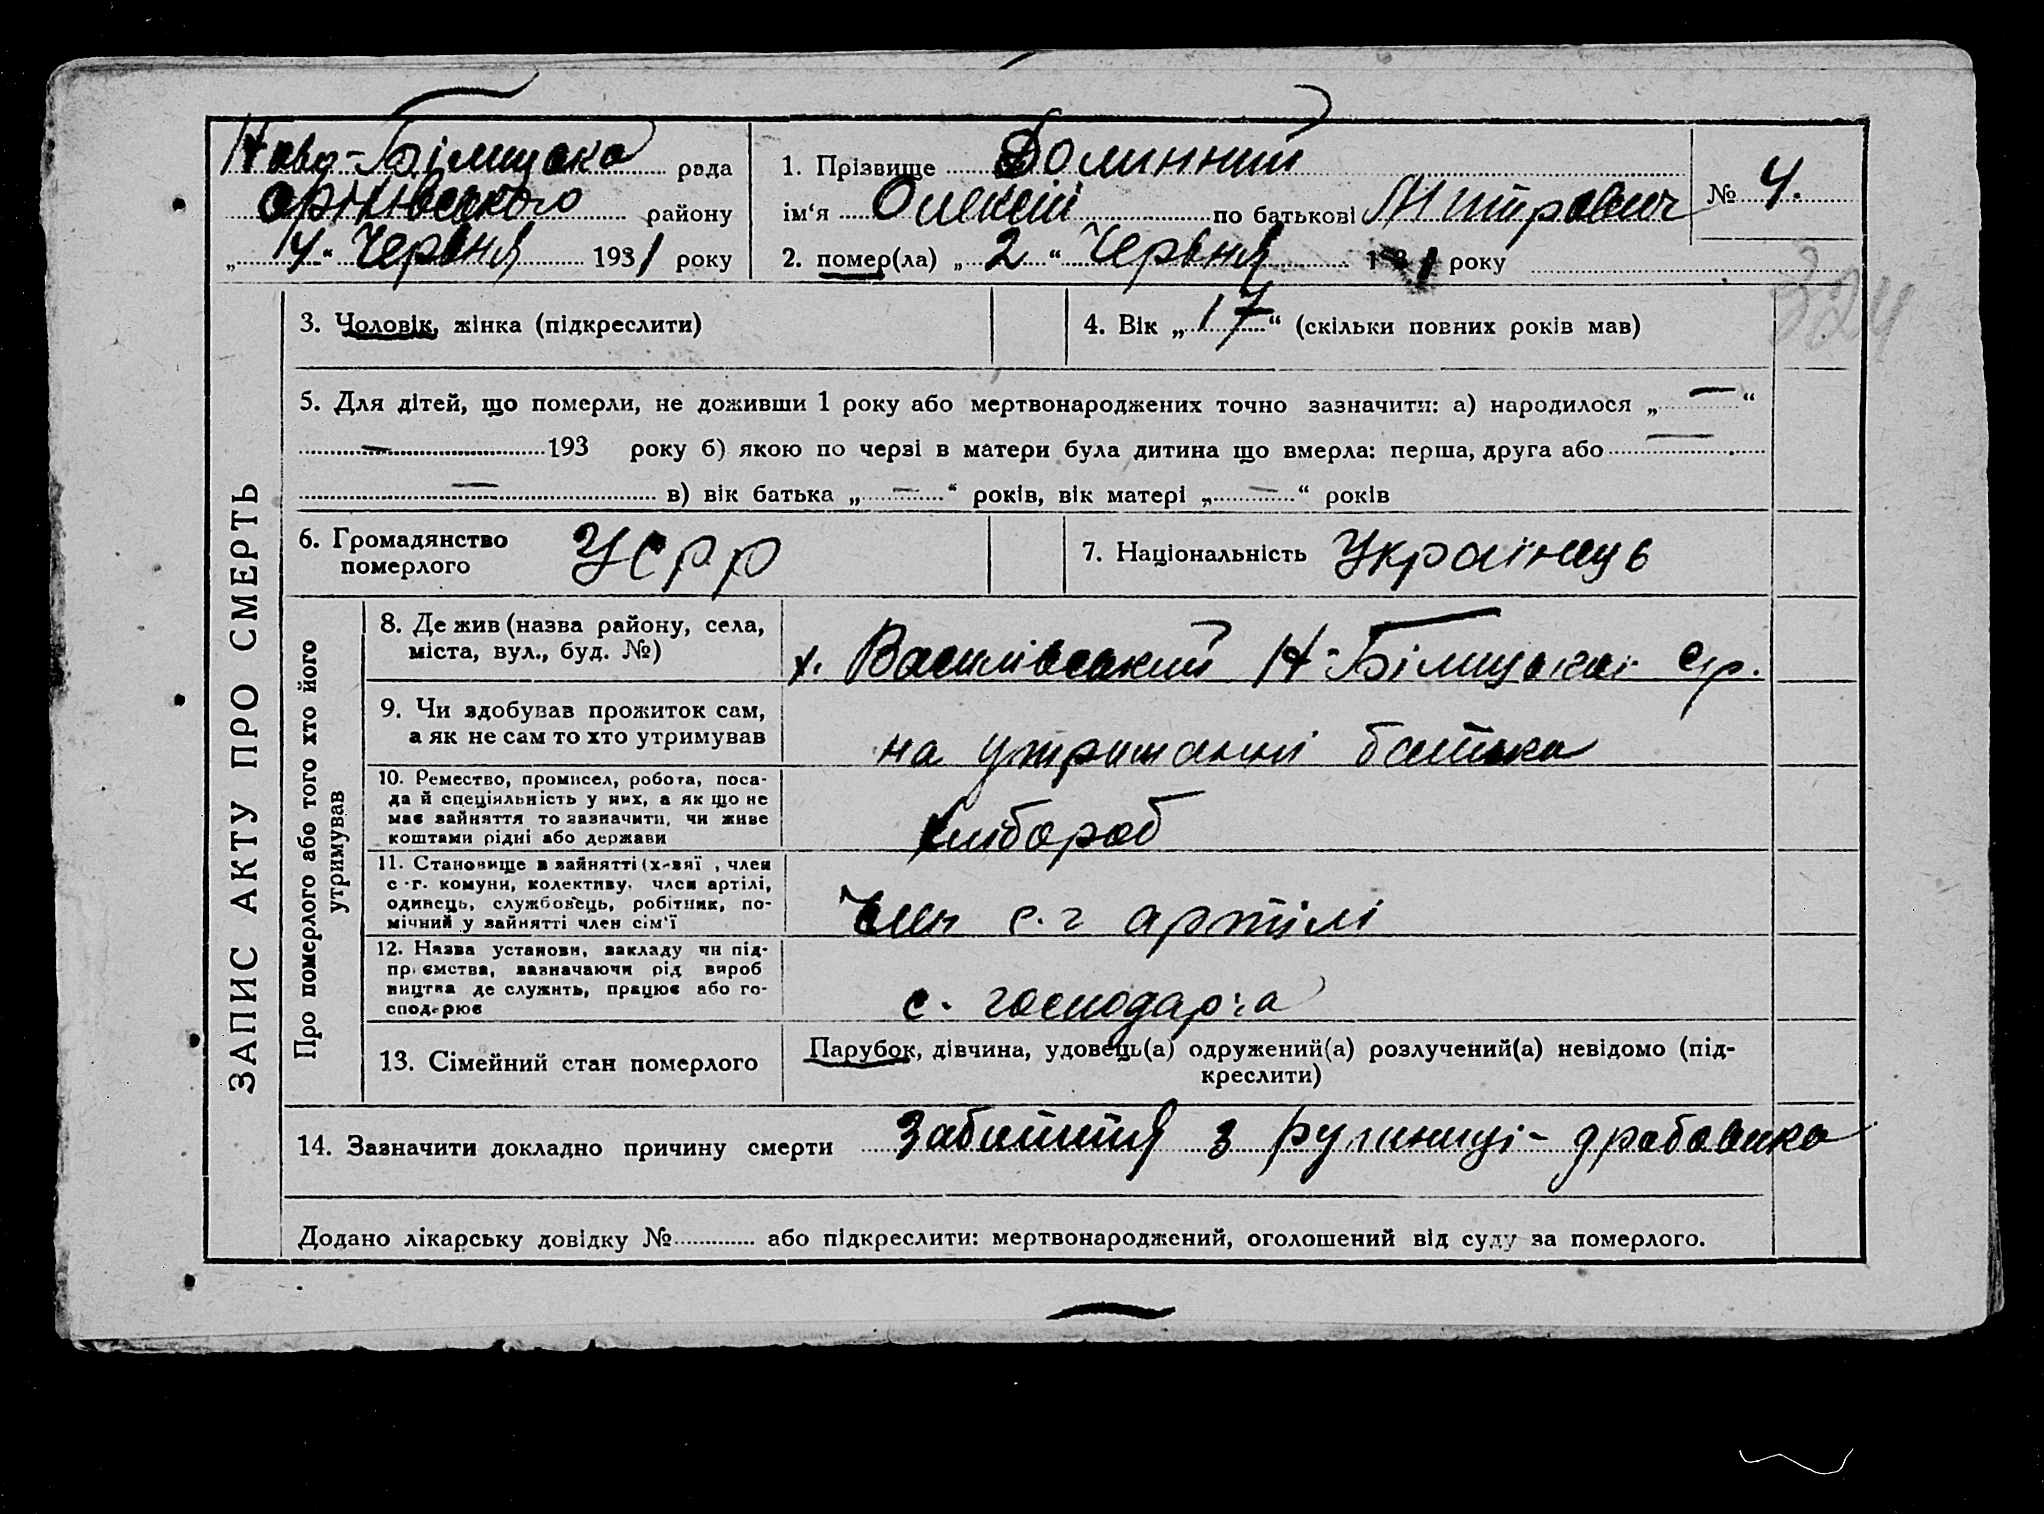 Ново-Білицька рада
оріхівського району
„ 14 “ Червня 1931 року
1. Прізвище Долинний
ім‘я Олексій по батькові Митрович
№ 4.
2. помер(ла) „ 2 “ Червня 1931 року
324
ЗАПИС АКТУ ПРО СМЕРТЬ
3. Чоловік, жінка (підкреслити)
4. Вік „ 17 “ (скільки повних років мав)
5. Для дітей, що померли, не доживши 1 року або мертвонароджених точно зазначити: а) народилося „ — “
— 193 року б) якою по черзі в матери була дитина що вмерла: перша, друга або —
— в) вік батька „ — “ років, вік матері „ — “ років
6. Громадянство
померлого
УСРР
7. Національність Українець
Про померлого або того хто його
утримував
8. Де жив (назва району, села,
міста, вул., буд. №)
х. Василівський Н-Білицької с/р.
9. Чи здобував прожиток сам,
а як не сам то хто утримував
на утриманні батька
10. Ремество, промисел, робота, поса-
да й специяльність у них, а як що не
має зайняття то зазначити, чи живе
коштами рідні або держави
хлібороб
11. Становище в зайнятті (х-вяї , член
с-г. комуни, колективу, член артілі,
одинець, службовець, робітник, по-
мічний у зайнятті член сім‘ї
Член с.г артілі
12. Назва установи, закладу чи під-
приємства, зазначаючи рід вироб
ництва де служить, працює або го-
сподарює
с. господар:а
13. Сімейний стан померлого
Парубок, дівчина, удовець(а) одружений(а) розлучений(а) невідомо (під-
креслити)
14. Зазначити докладно причину смерти Забиття з рушниці-дробовика
Додано лікарську довідку № або підкреслити: мертвонароджений, оголошений від суду за померлого.